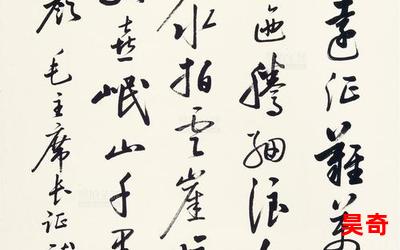 远征难万
迤腾细浪
水拍云崖
喜岷山千里
颜毛主席长征诗
昊奇